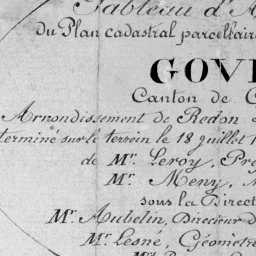 Tableau d'A
du Plan cadastral parcellair
GOV
Canton de C
Arrondissement de Redon
terminé sur le terrein le 18 juillet 1
de Mr. Leroy, Pré
Mr. Meny,
sous la Direct
Mr. Aubelin, Directeur d
Mr. Lesné, Géomètre